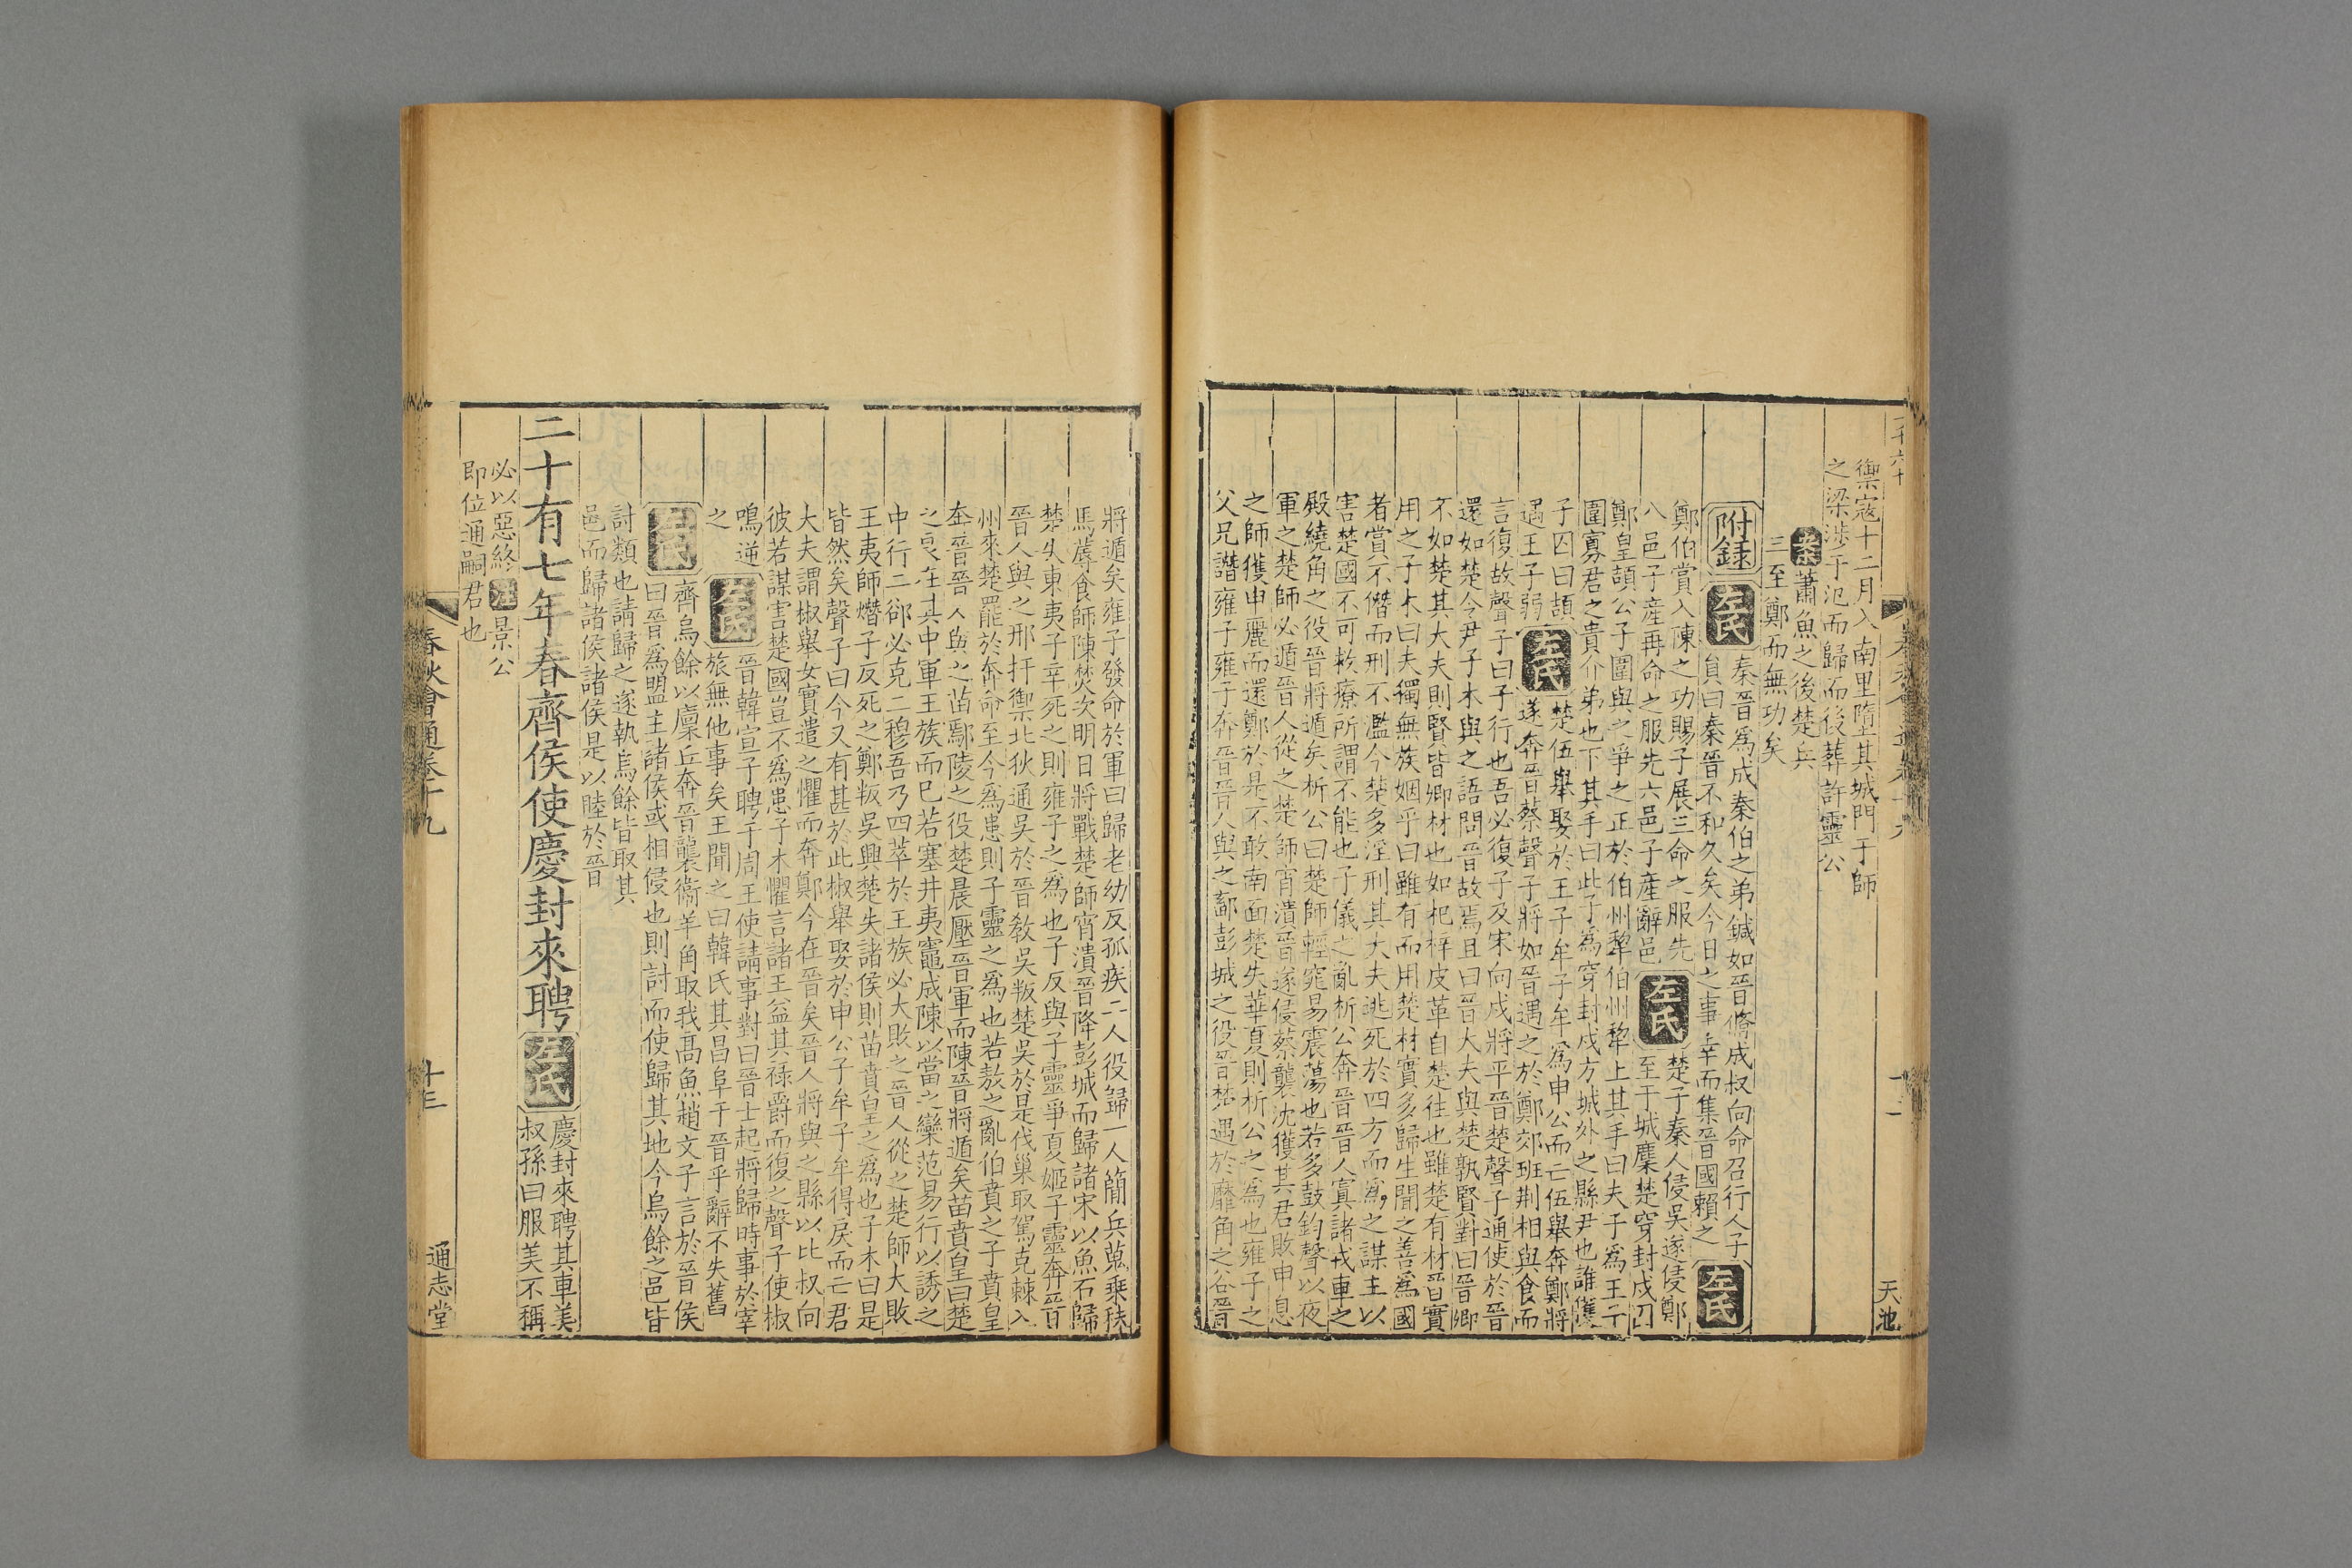 禦寇十二月入南里墮其城門于師
之梁涉于氾而歸而後葬許靈公
案蕭魚之後楚兵
三至鄭而無功矣
附録
左氏
秦晉為成秦伯之弟鍼如晉脩成叔向命召行人子
員曰秦晉不和久矣今日之事幸而集晉國賴之
左氏
鄭伯賞入陳之功賜子展三命之服先
八邑子產再命之服先六邑子產辭邑
左氏
楚子秦人侵吳遂侵鄭
至于城麇楚穿封戌囚
鄭皇頡公子圍與之爭之正於伯州犂伯州犂上其手曰夫子為王子
圍寡君之貴介弟也下其手曰此子為穿封戌方城外之縣尹也誰獲
子囚曰頡
遇王子弱
左氏
楚伍舉娶於王子牟子牟為申公而亡伍舉奔鄭將
遂奔晉蔡聲子將如晉遇之於鄭郊班荆相與食而
言復故聲子曰子行也吾必復子及宋向戌將平晉楚聲子通使於晉
還如楚令尹子木與之語問晉故焉且曰晉大夫與楚孰賢對曰晉卿
不如楚其大夫則賢皆卿材也如杞梓皮革自楚往也雖楚有材晉實
用之子木曰夫獨無族姻乎曰雖有而用楚材實多歸生聞之善為國
者賞不僭而刑不濫今楚多淫刑其大夫逃死於四方而為之謀主以
害楚國不可救療所謂不能也子儀之亂析公奔晉晉人寘諸戎車之
殿繞角之役晉將遁矣析公曰楚師輕窕易震蕩也若多鼓鈞聲以夜
軍之楚師必遁晉人從之楚師宵潰晉遂侵蔡襲沈獲其君敗申息
之師獲申麗而還鄭於是不敢南面楚失華夏則析公之為也雍子之
父兄譖雍子雍子奔晉晉人與之鄐彭城之役晉楚遇於靡角之谷晉
天池
將遁矣雍子發命於軍曰歸老幼反孤疾二人役歸一人簡兵蒐乘秣
馬蓐食師陳焚次明日將戰楚師宵潰晉降彭城而歸諸宋以魚石歸
楚失東夷子辛死之則雍子之為也子反與子靈爭夏姬子靈奔晉
晉人與之邢扞禦北狄通吳於晉敎吳叛楚吳於是伐巢取駕克棘入
州來楚罷於奔命至今為患則子靈之為也若敖之亂伯賁之子賁皇
奔晉晉人與之苗鄢陵之役楚晨壓晉軍而陳晉將遁矣苗賁皇曰楚
之良在其中軍王族而已若塞井夷竈成陳以當之欒范易行以誘之
中行二郤必克二穆吾乃四萃於王族必大敗之晉人從之楚師大敗
王夷師熸子反死之鄭叛吳興楚失諸侯則苗賁皇之為也子木曰是
皆然矣聲子曰今又有甚於此椒舉娶於申公子牟子牟得戾而亡君
大夫謂椒舉女實遣之懼而奔鄭今在晉矣晉人將與之縣以比叔向
彼若謀害楚國豈不為患子木懼言諸王益其祿爵而復之聲子使椒
鳴逆
之
左氏
晉韓宣子聘于周王使請事對曰晉士起將歸時事於宰
旅無他事矣王聞之曰韓氏其昌阜于晉乎辭不失舊
左氏
齊烏餘以廩丘奔晉襲衞羊角取我高魚趙文子言於晉侯
曰晉為盟主諸侯或相侵也則討而使歸其地今烏餘之邑皆
討類也請歸之遂執烏餘皆取其
邑而歸諸侯諸侯是以睦於晉
二十有七年春齊侯使慶封來聘
左氏
慶封來聘其車美
叔孫曰服美不稱
必以惡終注景公
即位通嗣君也
春秋會通卷十九
十三
通志堂